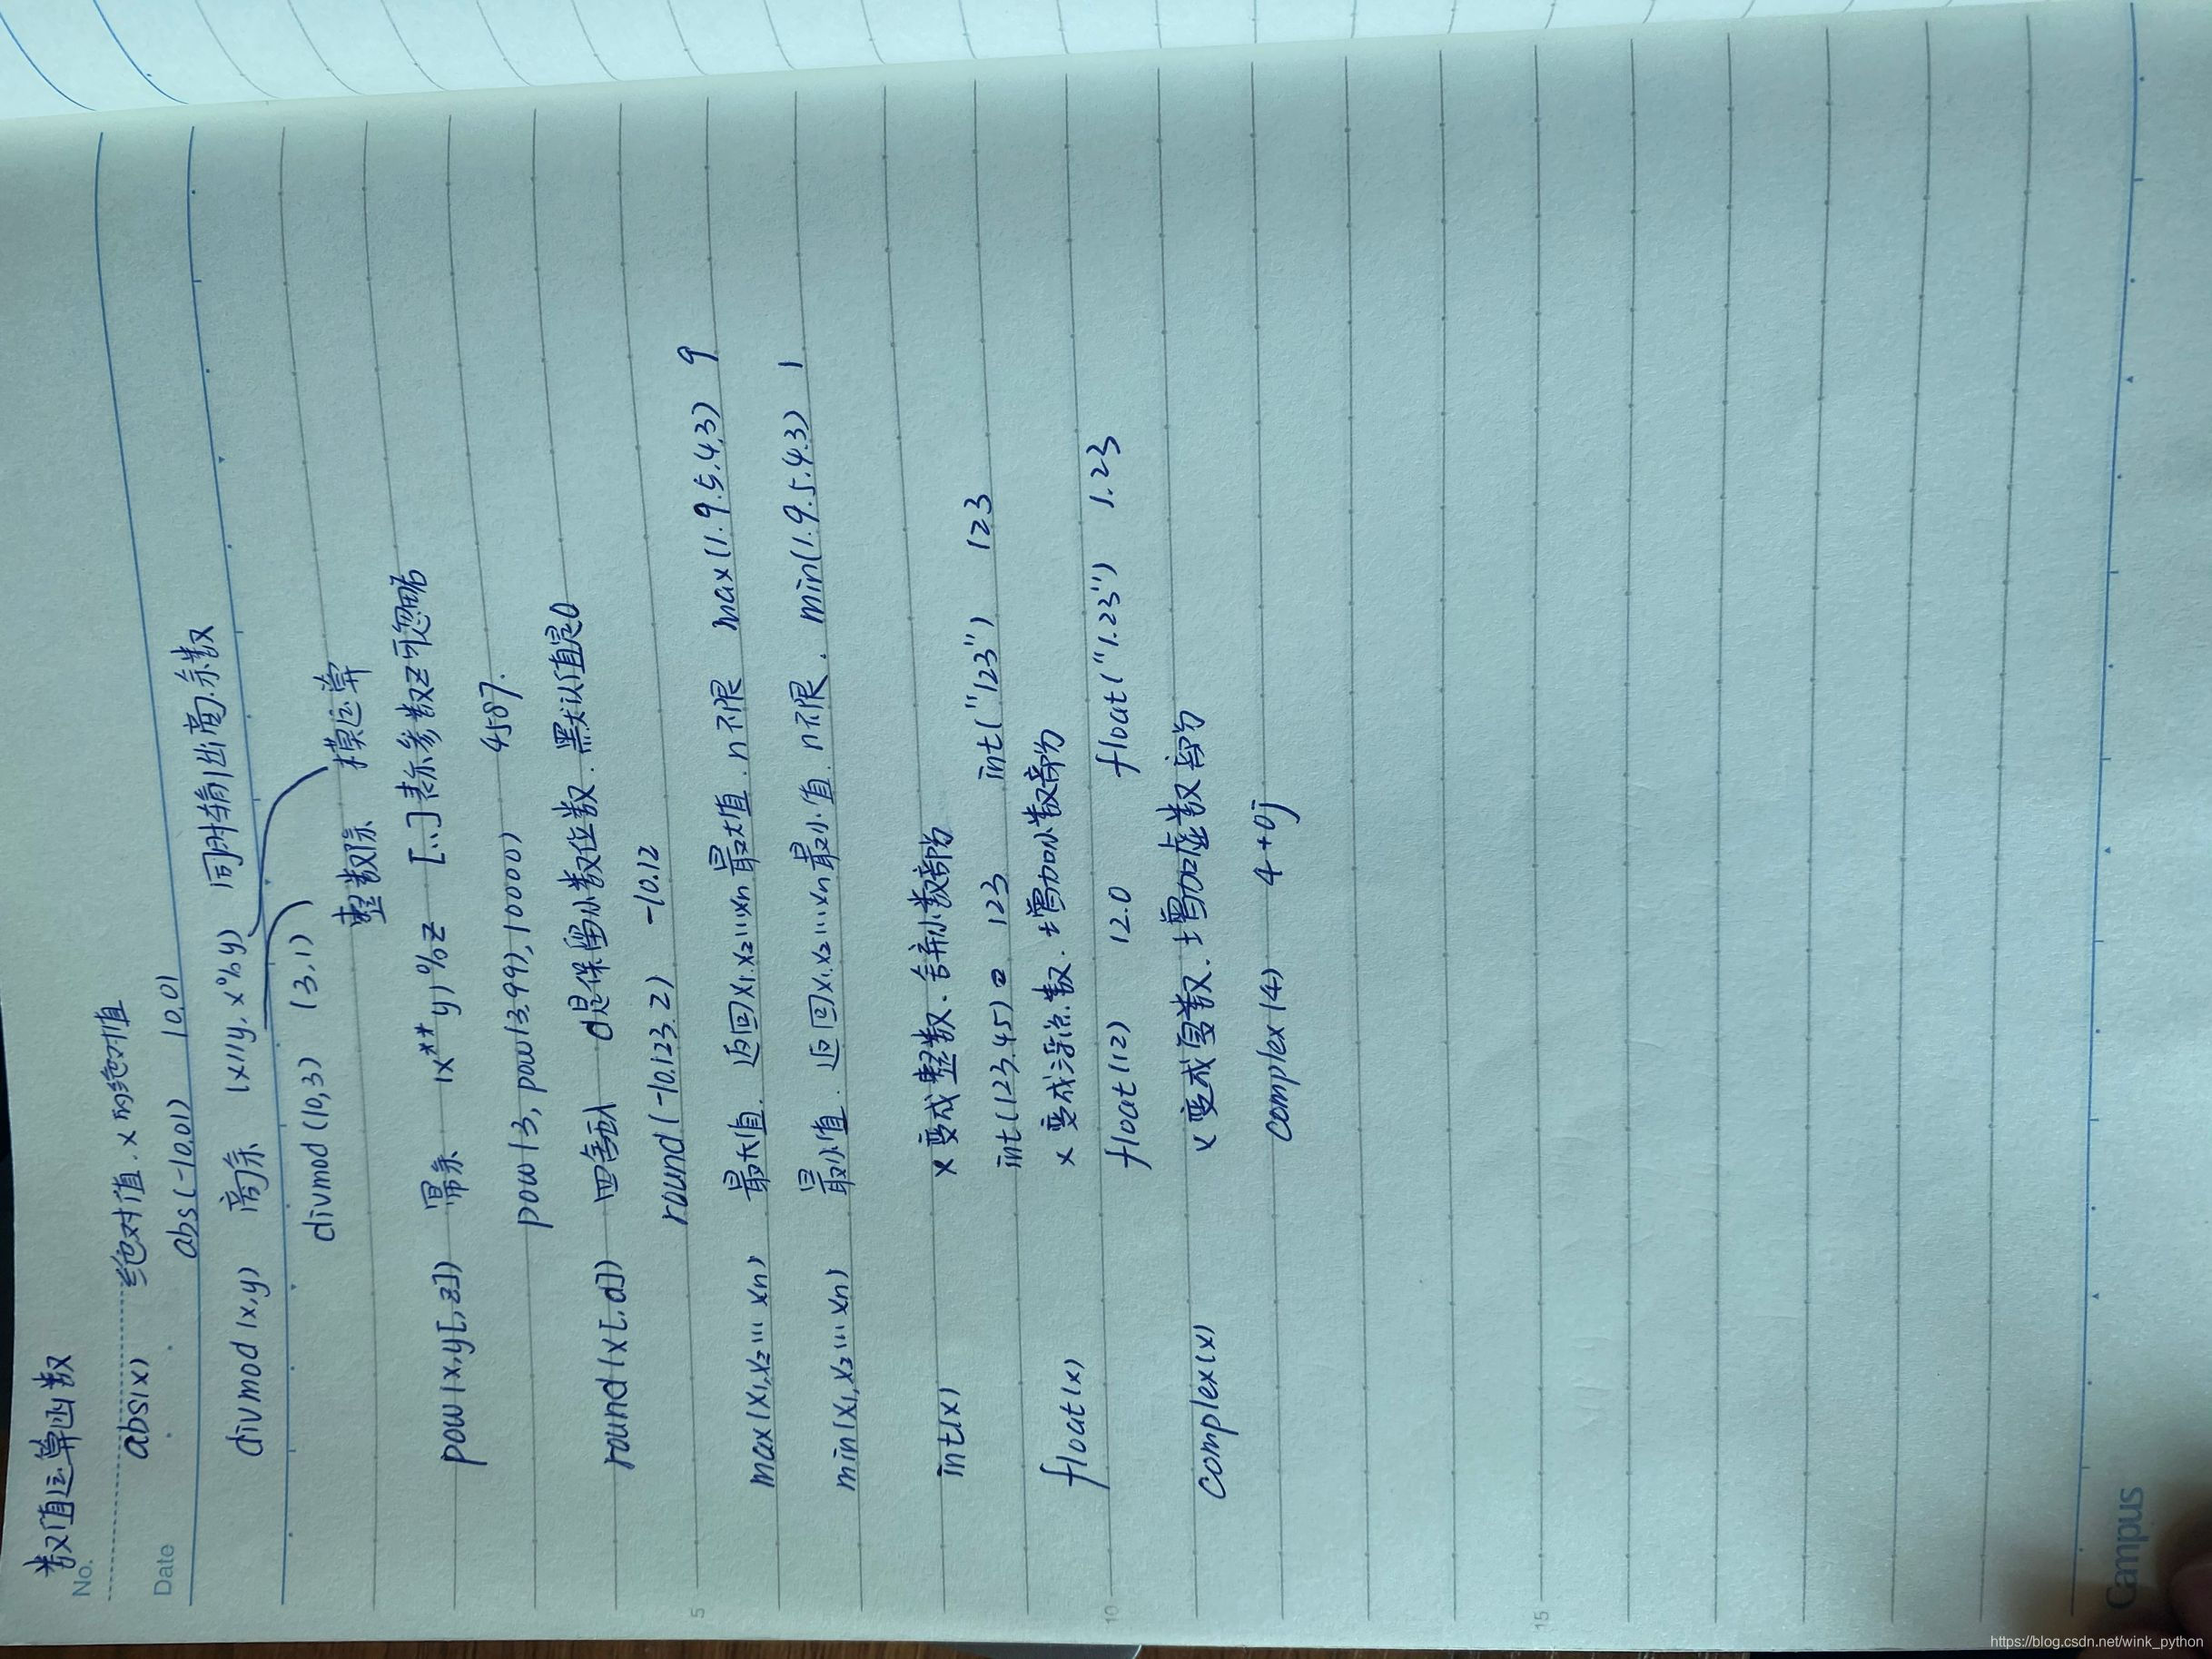 数值运算函数
No.
abs(x) 绝对值.x的绝对值
Date abs(-10.01) 10.01
divmod(x,y) 商余 (x//y, x%y) 同时输出商.余数
divmod(10,3) (3,1)
整数除 模运算
pow(x,y[,z]) 幂余 (x**y)%z [..]表示参数z可忽略
pow(3, pow(3.99), 10000) 4587.
round(x[.d]) 四舍五入 d是保留小数位数.默认值是0
round(-10.123.2) -10.12
5
max(x1,x2…xn) 最大值. 返回x1.x2…xn最大值.n不限 max(1.9.5.4.3) 9
min(x1,x2…xn) 最小值. 返回x1.x2…xn最小值.n不限. min(1.9.5.4.3) 1
int(x) x变成整数.舍弃小数部分
int(123.45) 123 int("123") 123
float(x) x变成浮点数.增加小数部分
10
float(12) 12.0 float("1.23") 1.23
complex(x) x变成复数.增加虚数部分
complex(4) 4+0j
15
Campus
https://blog.csdn.net/wink_python